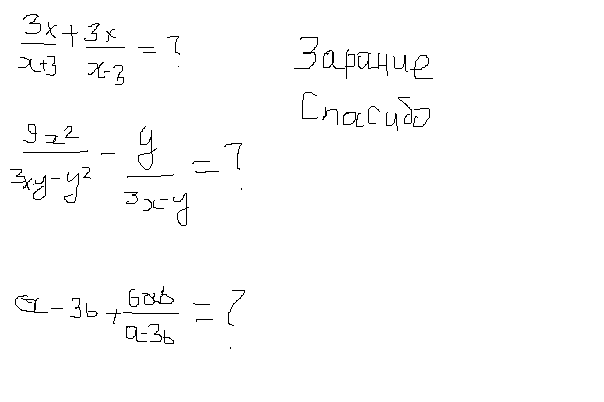 3x/x+3 + 3x/x-3 = ?
Зарание
Спасибо
9x²/3xy-y² - y/3x-y = ?
a - 3b + 6ab/a-3b = ?